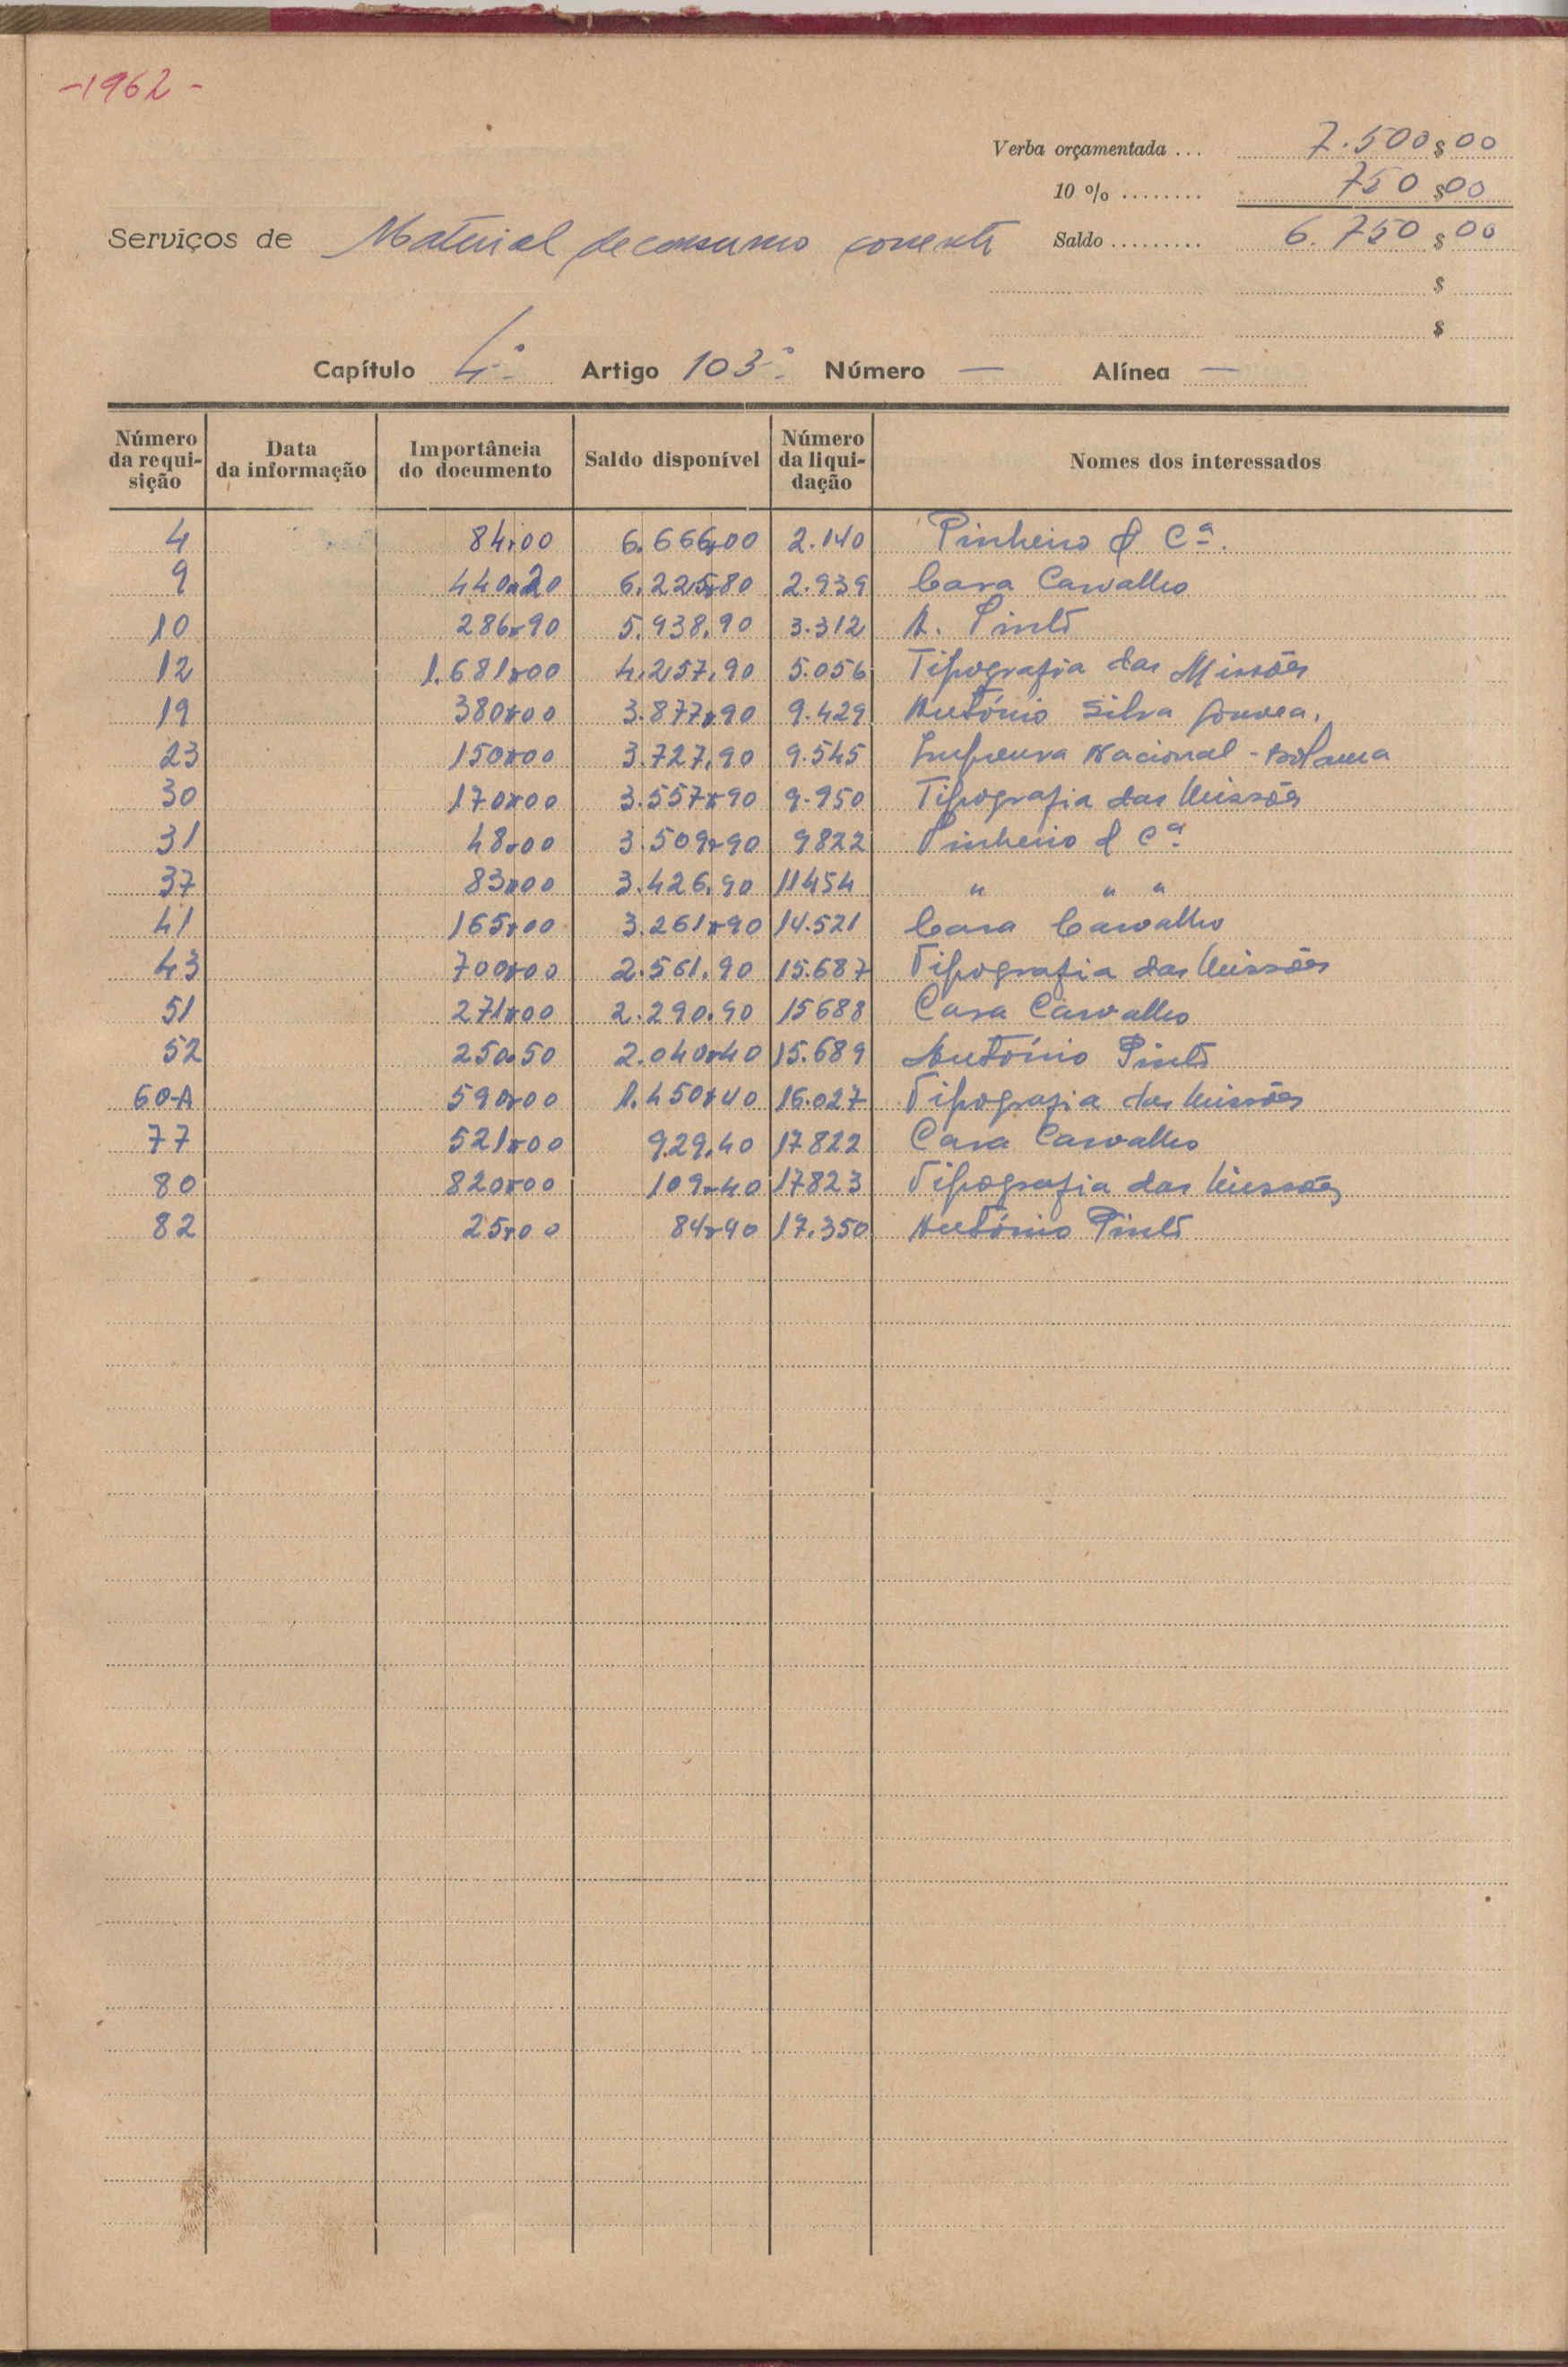 -1962-
Verba orçamentada ... 7.500$00
10 % ........ 750$00
Serviços de Material de consumo corrente Saldo ......... 6.750$00
$
$
Capítulo 4.º Artigo 103.º Número — Alínea —
Número da requisição Data da informação Importância do documento Saldo disponível Número da liquidação Nomes dos interessados
4 84,00 6.666,00 2.140 Pinheiro & Cª.
9 440,20 6.225,80 2.939 Casa Carvalho
10 286,90 5.938,90 3.312 A. Pinto
12 1.681,00 4.257,90 5.056 Tipografia das Missões
19 380,00 3.877,90 9.429 António Silva Gouvea.
23 150,00 3.727,90 9.545 Imprensa Nacional - Bolama
30 170,00 3.557,90 9.950 Tipografia das Missões
31 48,00 3.509,90 9822 Pinheiro & Cª
37 83,00 3.426,90 11454 " " "
41 165,00 3.261,90 14.521 Casa Carvalho
43 700,00 2.561,90 15.687 Tipografia das Missões
51 271,00 2.290,90 15688 Casa Carvalho
52 250,50 2.040,40 15.689 António Pinto
60-A 590,00 1.450,40 16.027 Tipografia das Missões
77 521,00 929,40 17822 Casa Carvalho
80 820,00 109,40 17823 Tipografia das Missões
82 25,00 84,90 17.350 António Pinto